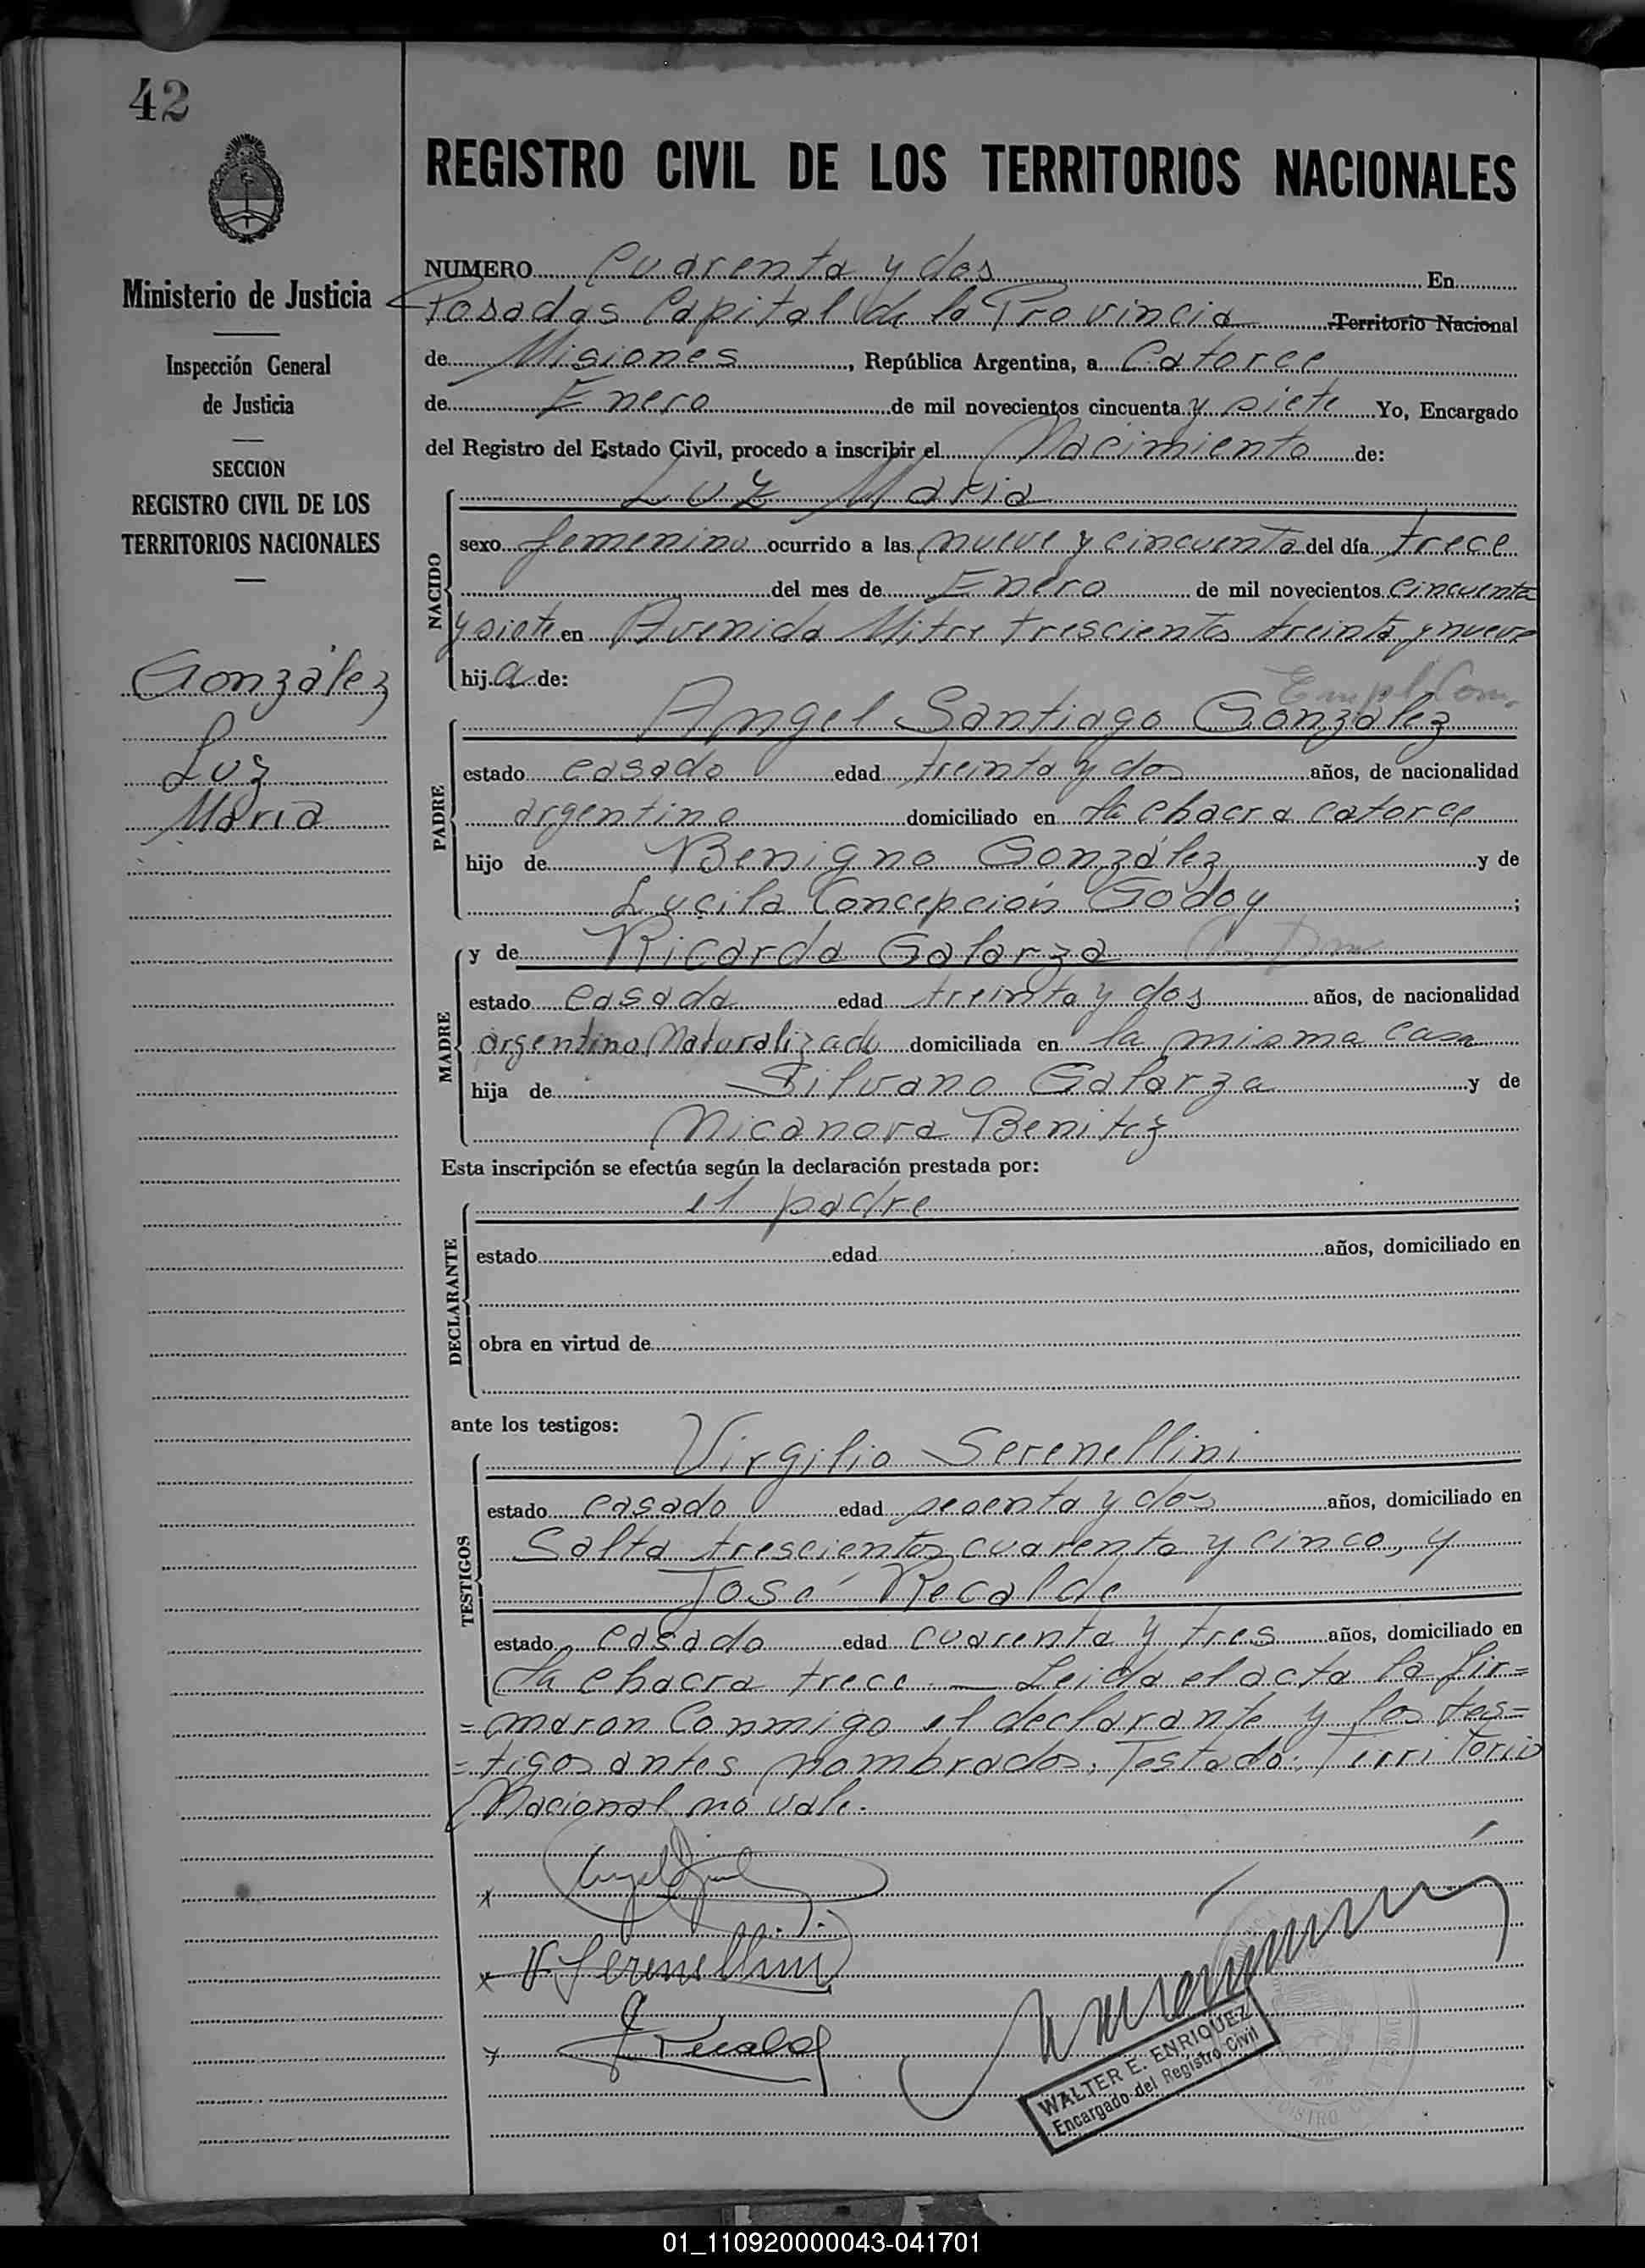 42
REGISTRO CIVIL DE LOS TERRITORIOS NACIONALES
Ministerio de Justicia
Inspección General
de Justicia
SECCION
REGISTRO CIVIL DE LOS
TERRITORIOS NACIONALES
González
Luz
María
NUMERO Cuarenta y dos En
Posadas Capital de la Provincia Territorio Nacional
de Misiones, República Argentina, a Catorce
de Enero de mil novecientos cincuenta y siete Yo, Encargado
del Registro del Estado Civil, procedo a inscribir el Nacimiento de:
NACIDO
Luz María
sexo femenino ocurrido a las nueve y cincuenta del día trece
del mes de Enero de mil novecientos cincuenta
y siete en Avenida Mitre trescientos treinta y nueve
hija de:
Empl. Com.
PADRE
Angel Santiago González
estado casado edad treinta y dos años, de nacionalidad
argentino domiciliado en la chacra catorce
hijo de Benigno González y de
Lucila Concepción Godoy;
MADRE
y de Ricarda Galarza
estado casada edad treinta y dos años, de nacionalidad
argentina Naturalizada domiciliada en la misma casa
hija de Silvano Galarza y de
Nicanora Benitez
Esta inscripción se efectúa según la declaración prestada por:
DECLARANTE
el padre
estado edad años, domiciliado en
obra en virtud de
ante los testigos:
TESTIGOS
Virgilio Serenellini
estado casado edad sesenta y dos años, domiciliado en
Salta trescientos cuarenta y cinco, y
José Recalde
estado casado edad cuarenta y tres años, domiciliado en
la chacra trece.— Leída el acta la fir=
=maron Conmigo el declarante y los tes=
=tigos antes nombrados. Testado: Territorio
Nacional no vale.
x
x V. Serenellini
x J Recalde
WALTER E. ENRIQUEZ
Encargado del Registro Civil
01_110920000043-041701